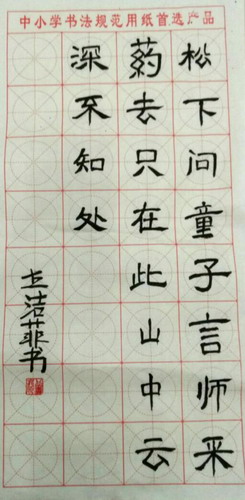 中小学书法规范用纸首选产品
松下问童子言师采
药去只在此山中云
深不知处
洁菲书